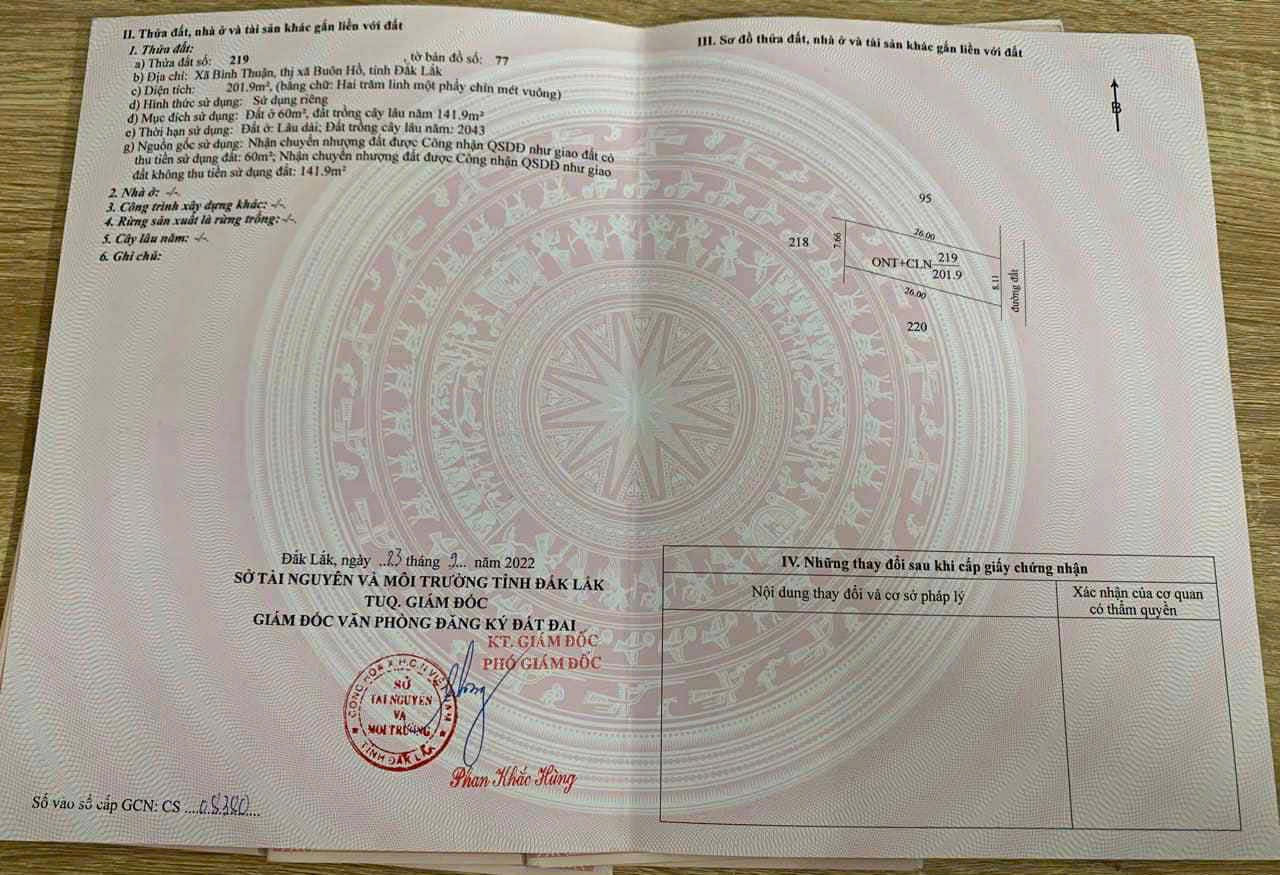 II. Thửa đất, nhà ở và tài sản khác gắn liền với đất
1. Thửa đất:
a) Thửa đất số: 219 , tờ bản đồ số: 77
b) Địa chỉ: Xã Bình Thuận, thị xã Buôn Hồ, tỉnh Đắk Lắk
c) Diện tích: 201.9m², (bằng chữ: Hai trăm linh một phẩy chín mét vuông)
d) Hình thức sử dụng: Sử dụng riêng
đ) Mục đích sử dụng: Đất ở 60m², đất trồng cây lâu năm 141.9m²
e) Thời hạn sử dụng: Đất ở: Lâu dài; Đất trồng cây lâu năm: 2043
g) Nguồn gốc sử dụng: Nhận chuyển nhượng đất được Công nhận QSDĐ như giao đất có
thu tiền sử dụng đất: 60m²; Nhận chuyển nhượng đất được Công nhận QSDĐ như giao
đất không thu tiền sử dụng đất: 141.9m²
2. Nhà ở: -/-
3. Công trình xây dựng khác: -/-
4. Rừng sản xuất là rừng trồng: -/-
5. Cây lâu năm: -/-
6. Ghi chú:
Đắk Lắk, ngày ..23 tháng 9... năm 2022
SỞ TÀI NGUYÊN VÀ MÔI TRƯỜNG TỈNH ĐẮK LẮK
TUQ. GIÁM ĐỐC
GIÁM ĐỐC VĂN PHÒNG ĐĂNG KÝ ĐẤT ĐAI
KT. GIÁM ĐỐC
PHÓ GIÁM ĐỐC
CỘNG HÒA X.H.C.N VIỆT NAM
SỞ
TÀI NGUYÊN
VÀ
MÔI TRƯỜNG
TỈNH ĐẮK LẮK
Phan Khắc Hùng
Số vào sổ cấp GCN: CS ....08380....
III. Sơ đồ thửa đất, nhà ở và tài sản khác gắn liền với đất
B
95
218
7.66
26.00
ONT+CLN 219
201.9
8.11
đường đất
26.00
220
IV. Những thay đổi sau khi cấp giấy chứng nhận
Nội dung thay đổi và cơ sở pháp lý
Xác nhận của cơ quan
có thẩm quyền